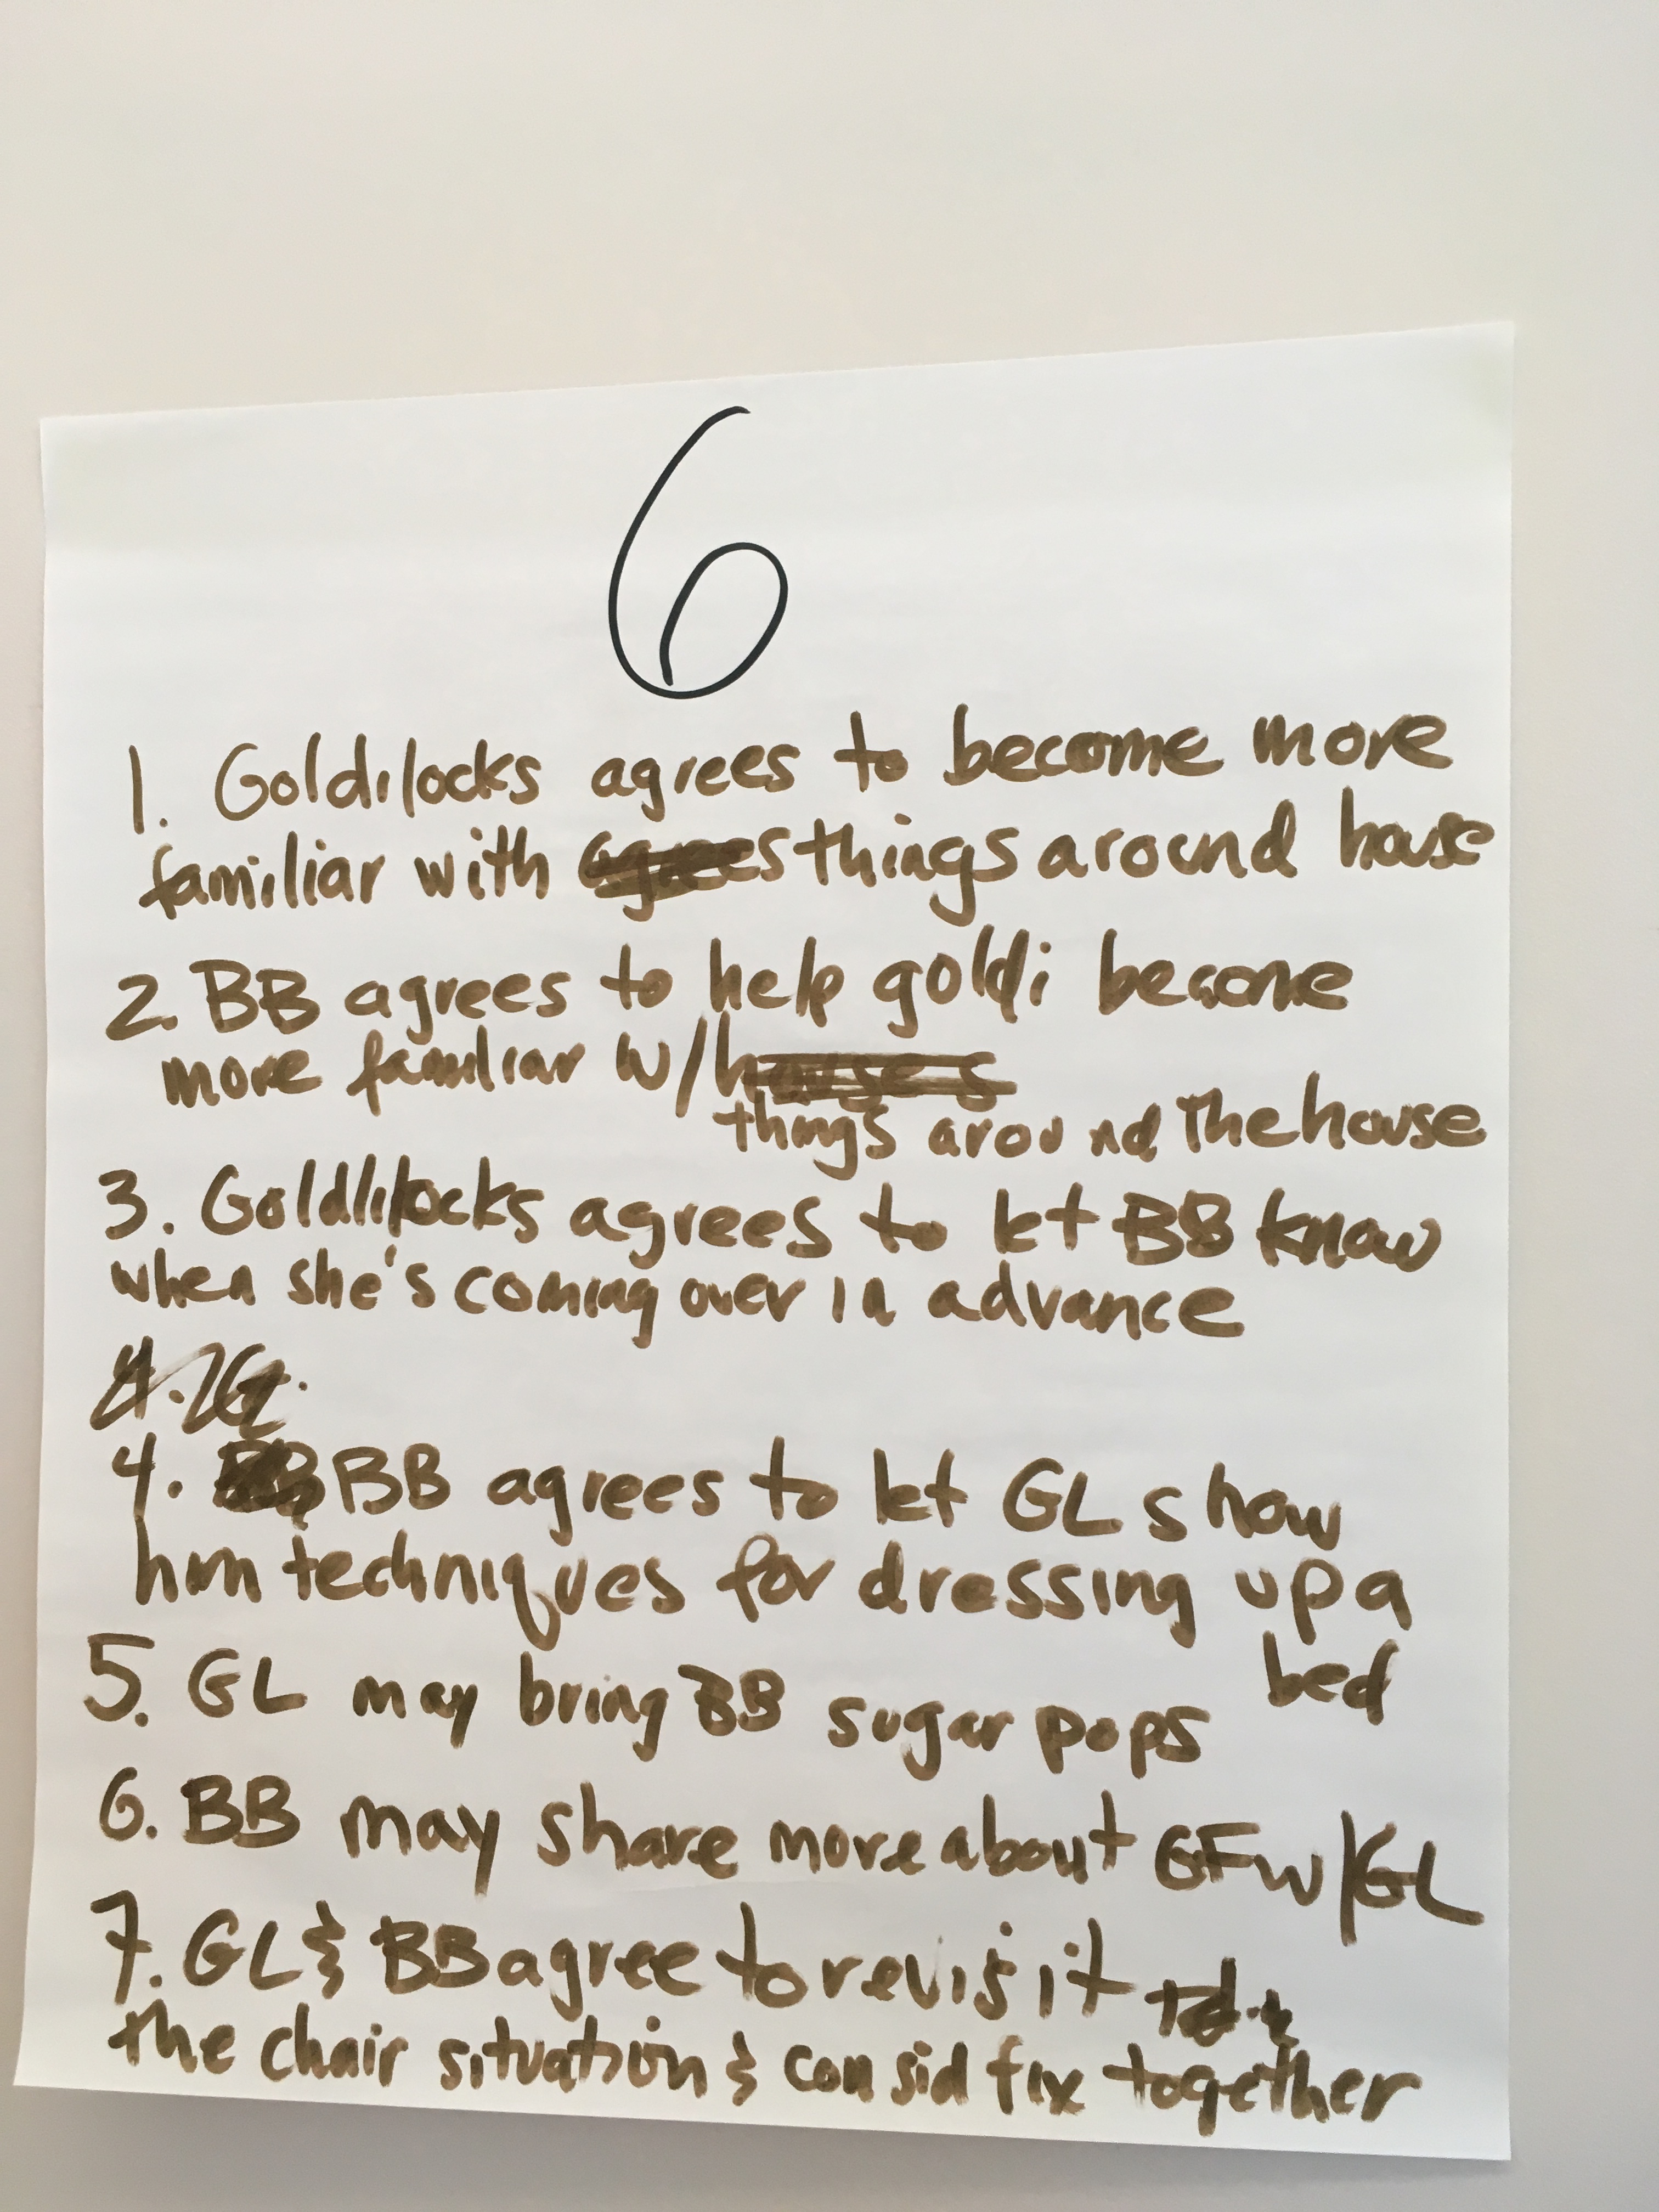 6
1. Goldilocks agrees to become more
familiar with agrees things around house
2. BB agrees to help goldi become
more familiar w/ houses
things around The house
3. Goldilocks agrees to let BB know
when she's coming over in advance
4.
4. BB agrees to let GL show
him techniques for dressing up a
bed
5. GL may bring BB sugar pops
6. BB may share more about GF w/ GL
7. GL & BB agree to revisit
the chair situation & consid fix together